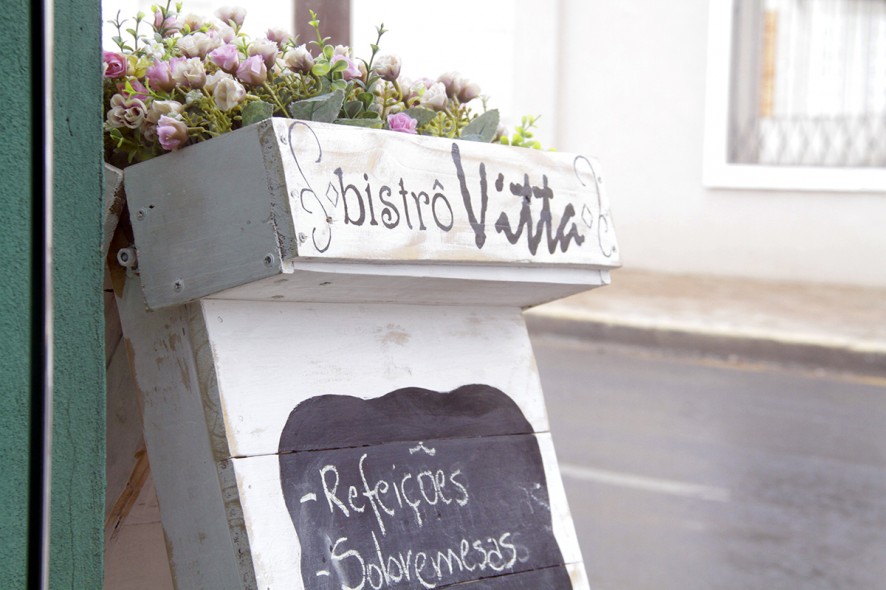 bistrô Vitta
- Refeições
- Sobremesas